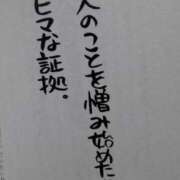 人のことを憎み始めた
ヒマな証拠.